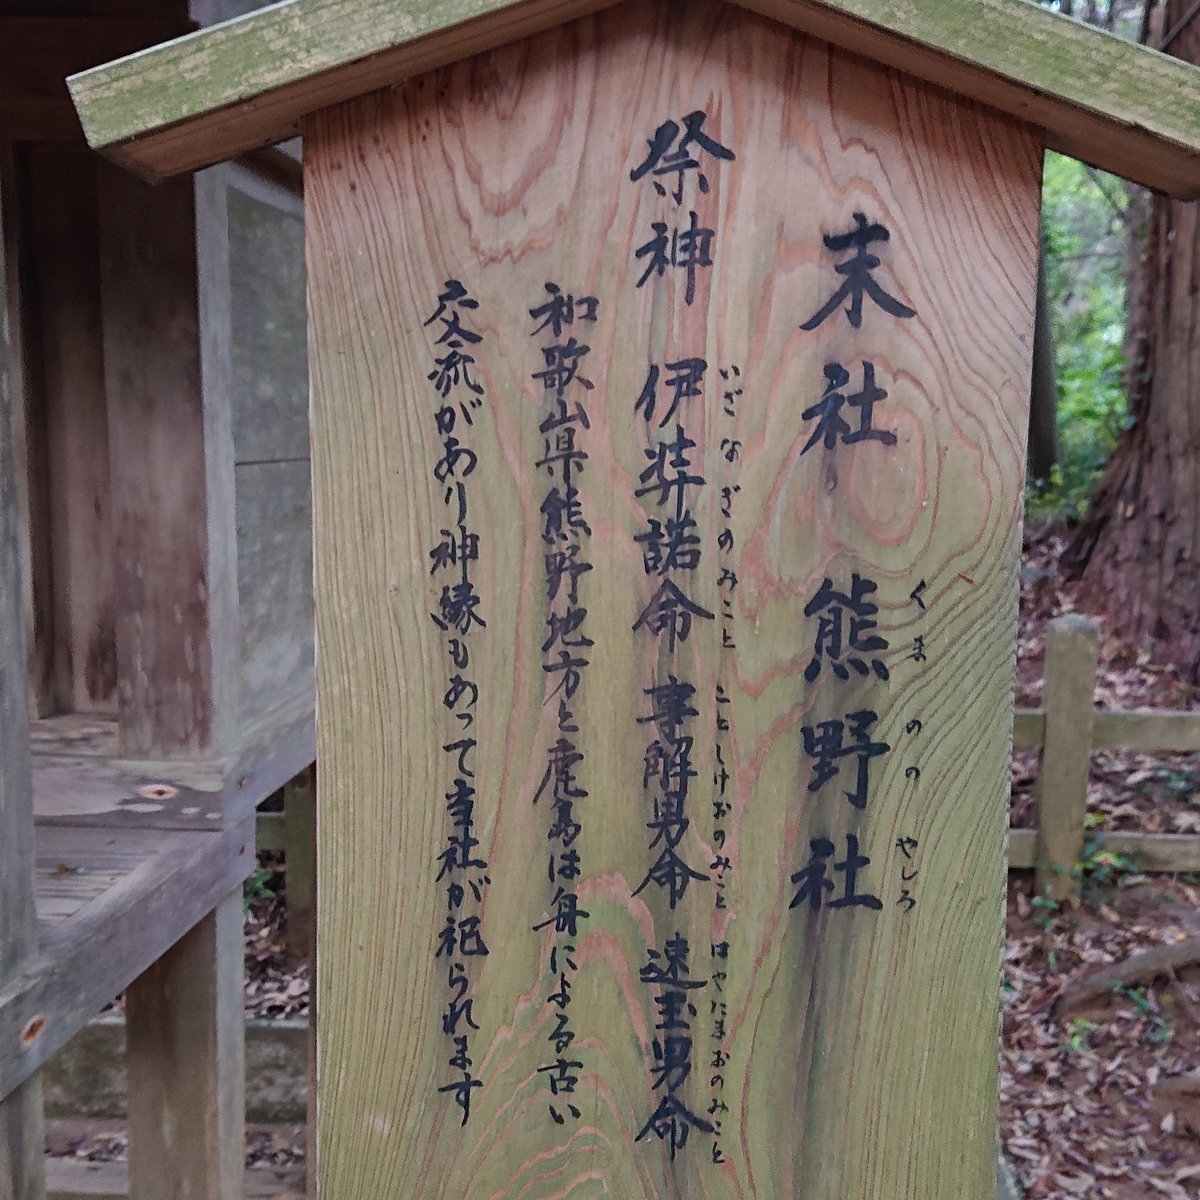 末社 熊野社
くまののやしろ
祭神 伊弉諾命 事解男命 速玉男命
いざなぎのみこと ことしけおのみこと はやたまおのみこと
和歌山県熊野地方と鹿島は舟による古い
交流があり神縁もあって当社が祀られます